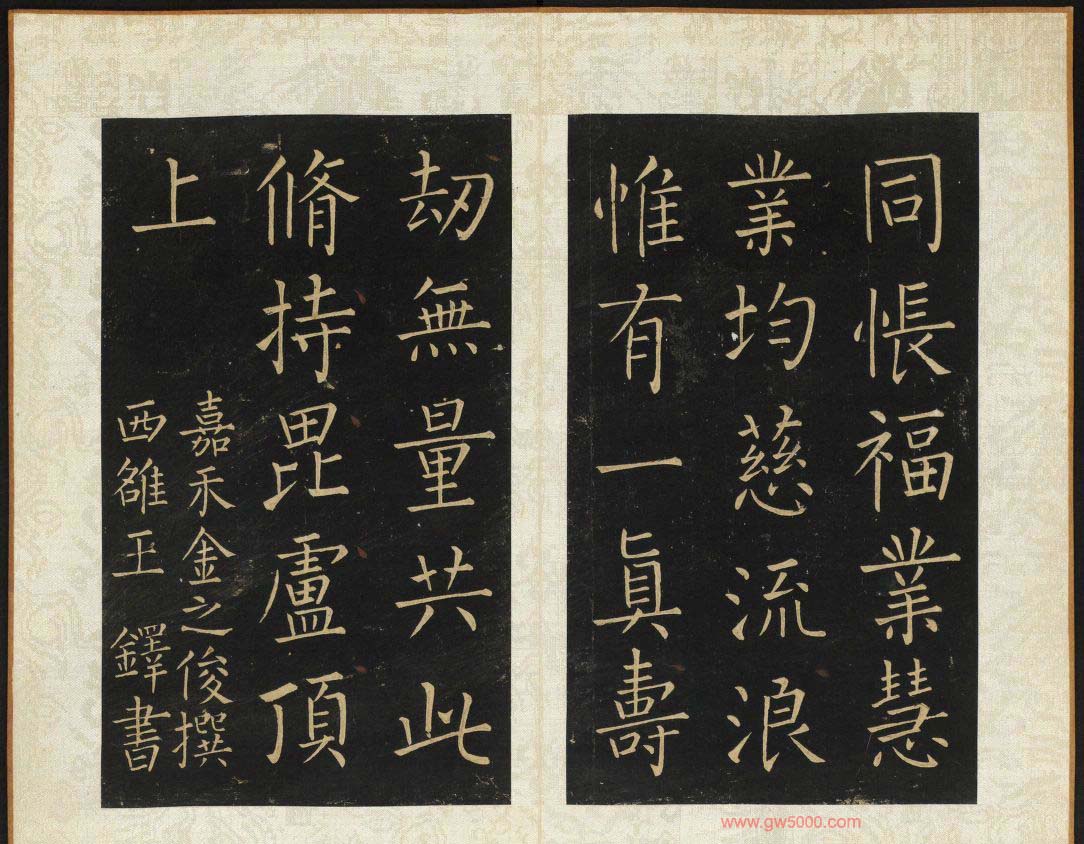 同悵福業慧
業均慈流浪
惟有一眞壽
劫無量共此
脩持毘盧頂
上
嘉禾金之俊撰
西雒王鐸書
www.gw5000.com